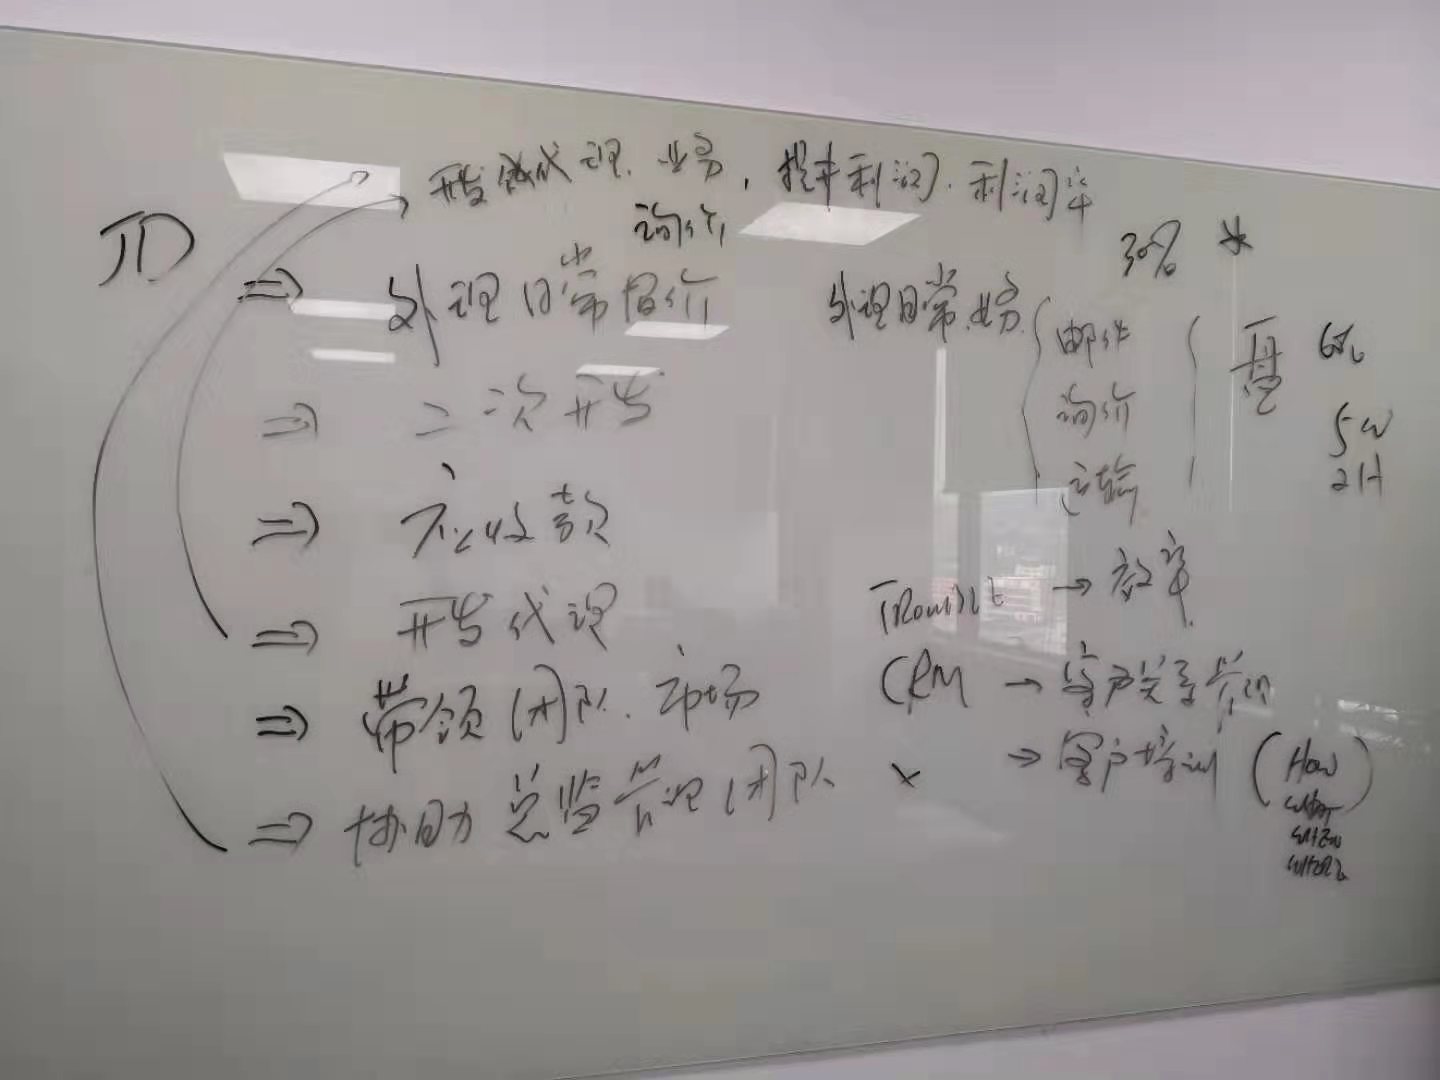 开发代理. 业务, 提升利润. 利润率
JD
询价
⇒ 处理日常报价
⇒ 二次开发
⇒ 应收款
⇒ 开发代理
⇒ 带领团队. 市场
⇒ 协助总监管理团队 ×
30%
处理日常业务
邮件
询价
运输
5W
2H
→ 效率
CRM → 客户关系管理
→ 客户培训 (How
WHAT
WHEN
WHERE)